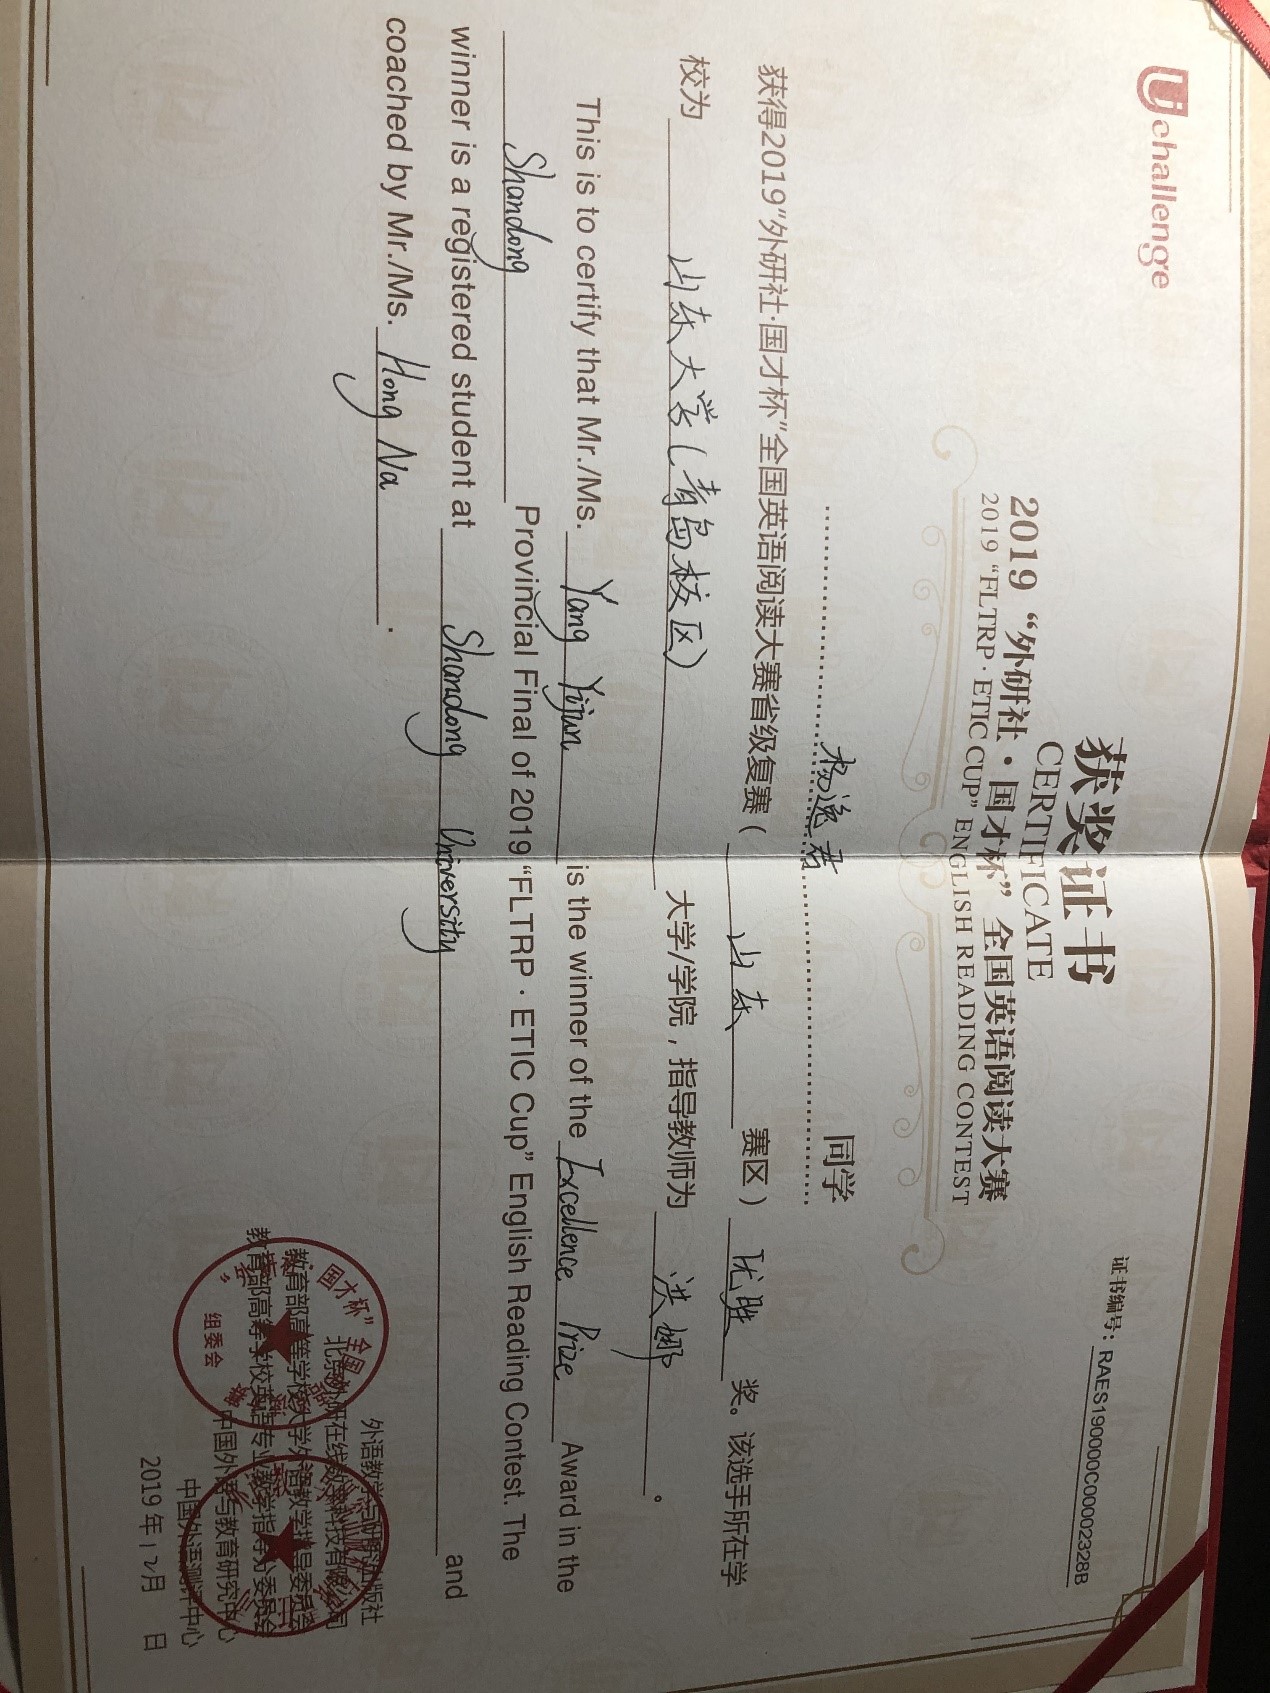 Uchallenge
证书编号：RAES190000C00002328B
获奖证书
CERTIFICATE
2019“外研社·国才杯”全国英语阅读大赛
2019 “FLTRP·ETIC CUP” ENGLISH READING CONTEST
杨逸君 同学
获得2019“外研社·国才杯”全国英语阅读大赛省级复赛（ 山东 赛区） 优胜 奖。该选手所在学
校为 山东大学（青岛校区） 大学/学院，指导教师为 洪娜 。
This is to certify that Mr./Ms. Yang Yijun is the winner of the Excellence Prize Award in the
Shandong Provincial Final of 2019 “FLTRP · ETIC Cup” English Reading Contest. The
winner is a registered student at Shandong University and
coached by Mr./Ms. Hong Na .
外语教学与研究出版社
北京外研在线数字科技有限公司
教育部高等学校大学外语教学指导委员会
教育部高等学校英语专业教学指导分委员会
中国外语与教育研究中心
中国外语测评中心
国才杯”全国
组委会
2019 年 12月 日